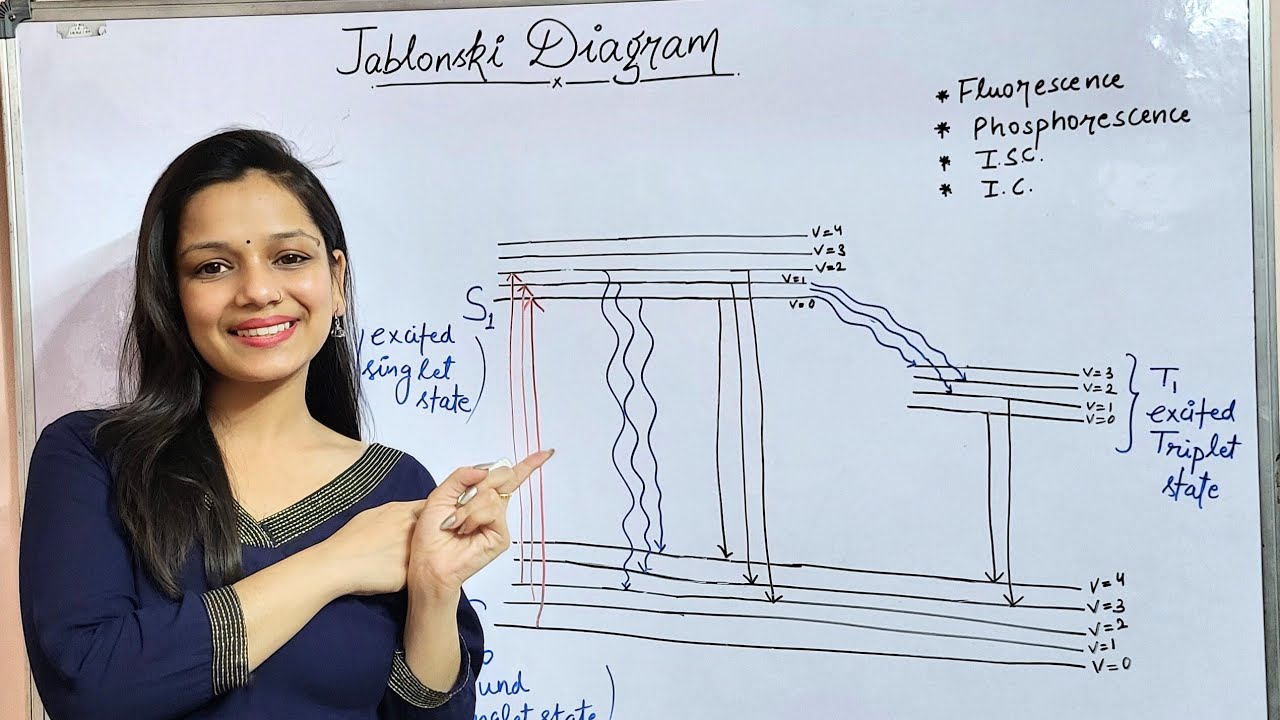 Jablonski Diagram
x
* Fluorescence
* Phosphorescence
* I.S.C.
* I.C.
V=4
V=3
V=2
V=1
V=0
S1
(excited
singlet
state)
V=3
V=2
V=1
V=0
T1
excited
Triplet
state
V=4
V=3
V=2
V=1
V=0
state)